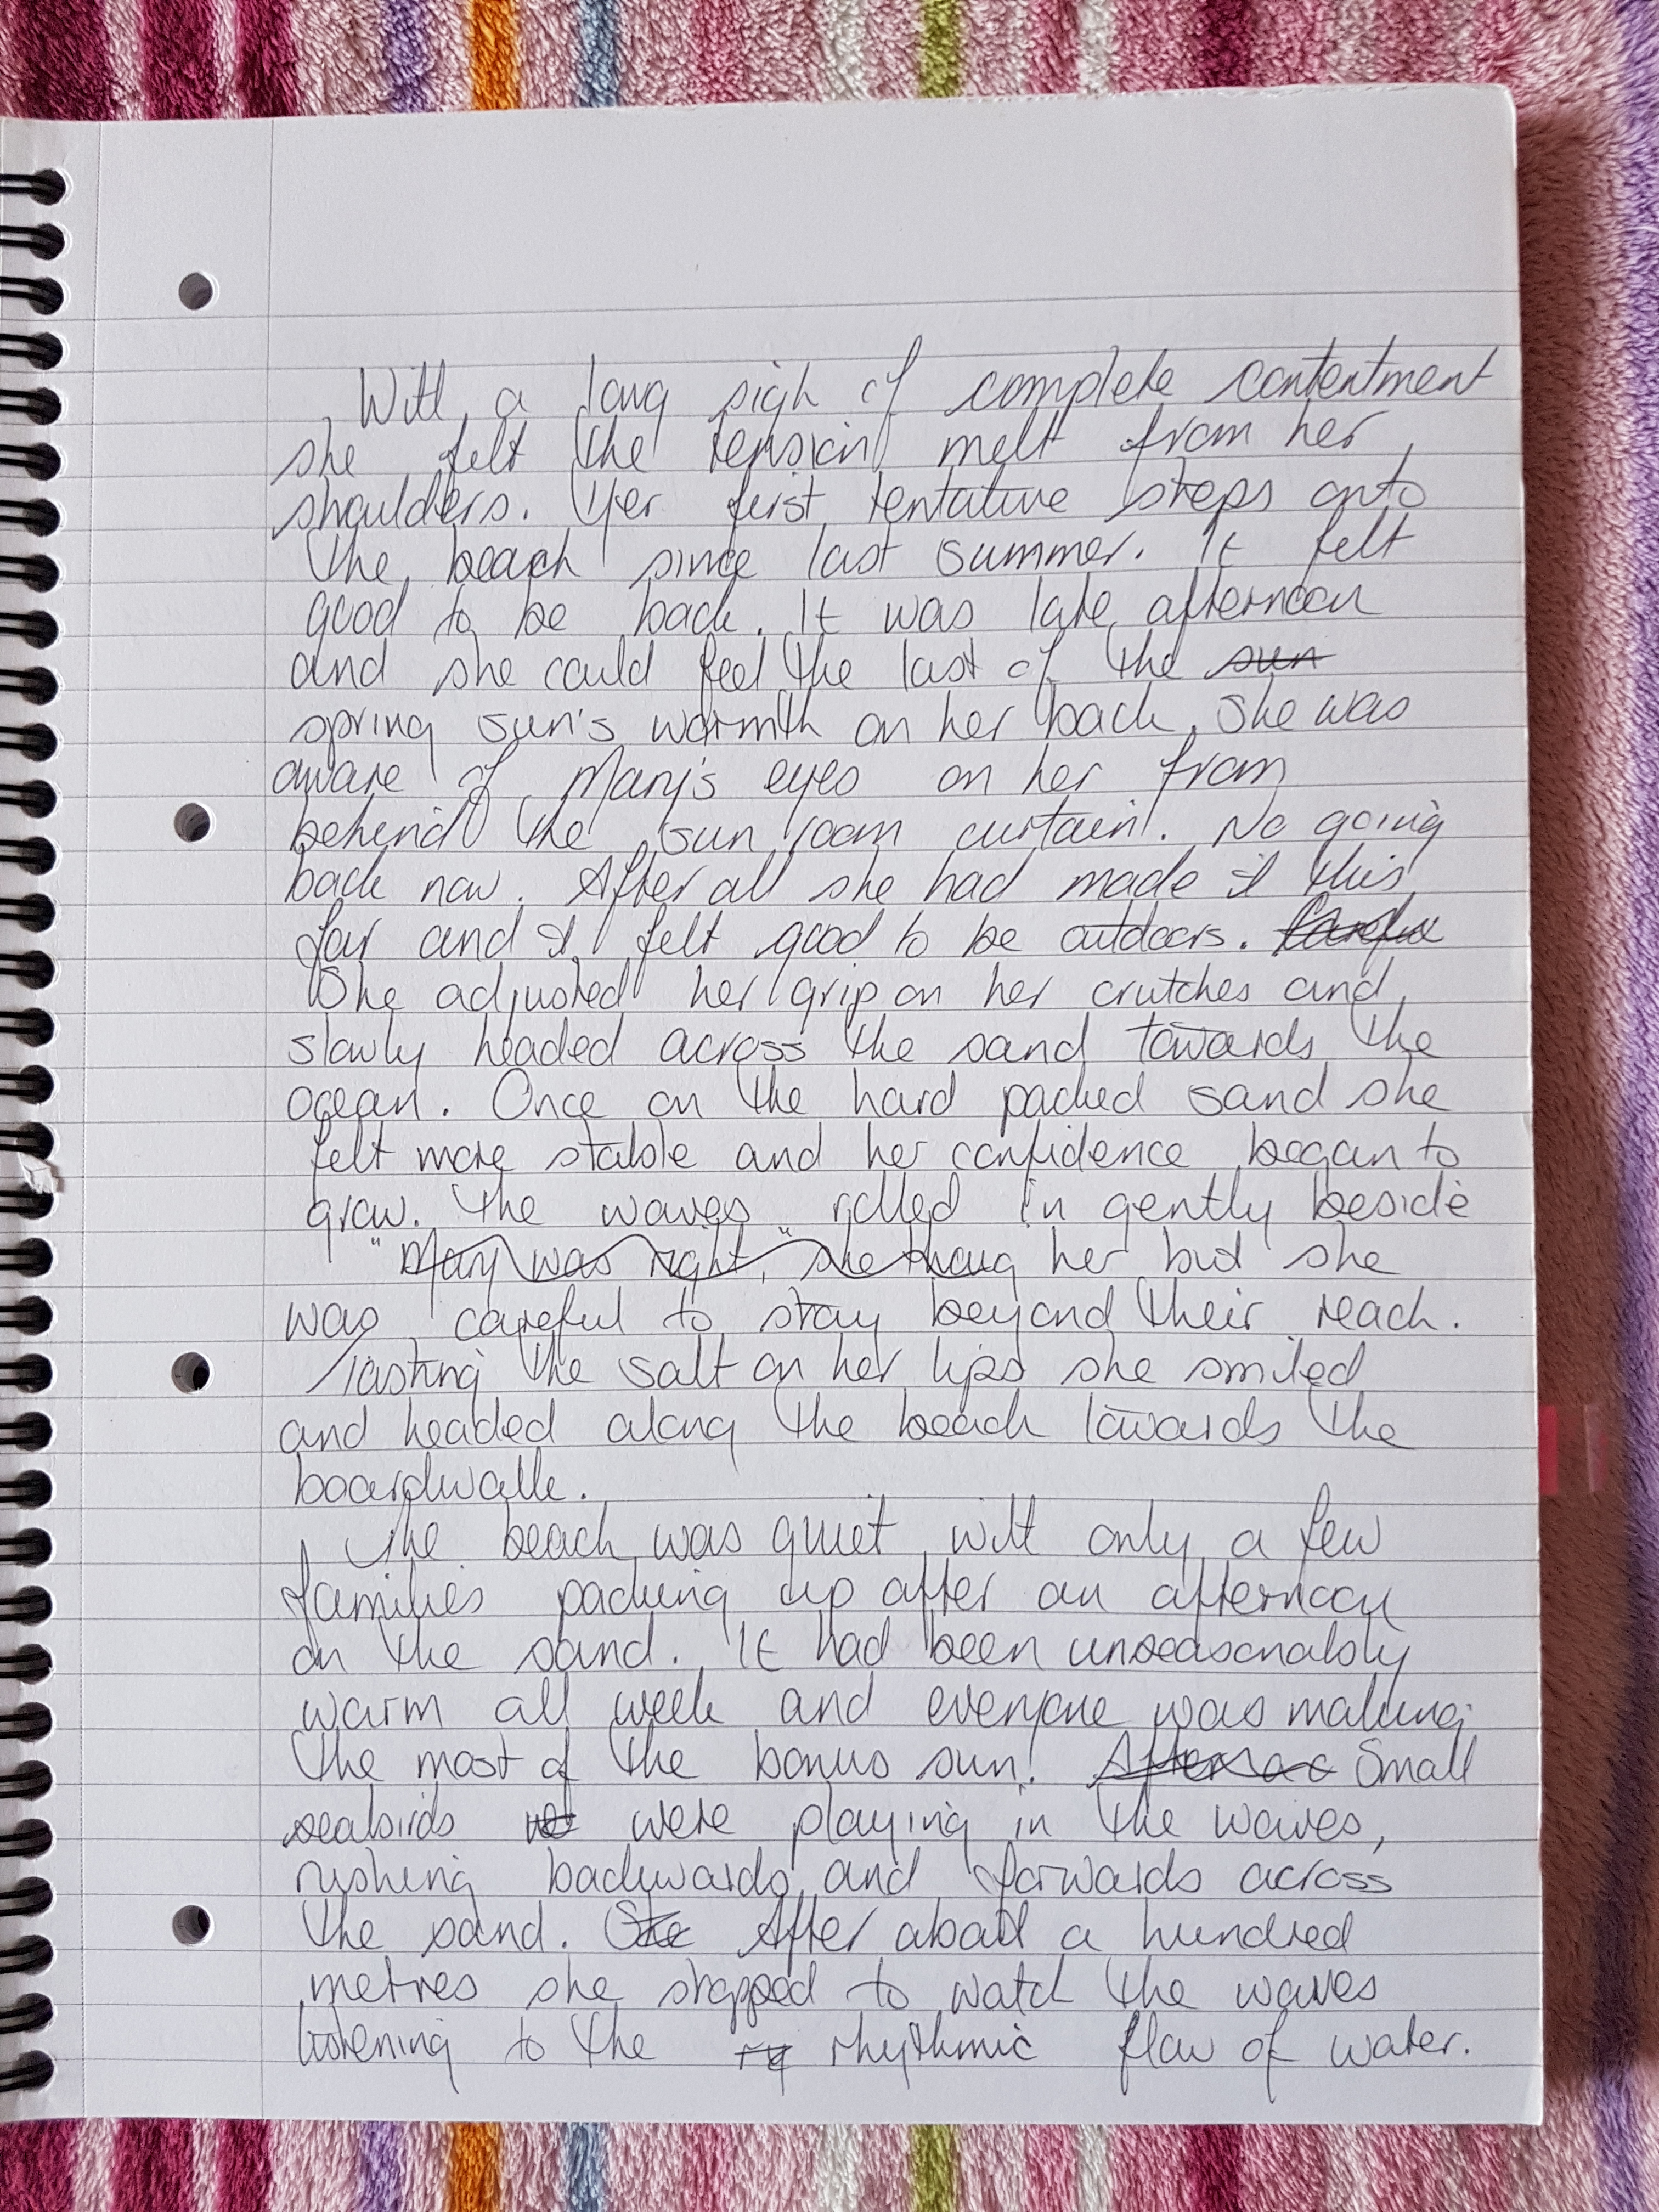 With a long sigh of complete contentment
she felt the tension melt from her
shoulders. Her first tentative steps onto
the beach since last summer. It felt
good to be back. It was late afternoon
and she could feel the last of the sun
spring sun's warmth on her back. She was
aware of Mary's eyes on her from
behind the sun room curtain. No going
back now. After all she had made it this
far and it felt good to be outdoors. Carefu
She adjusted her grip on her crutches and
slowly headed across the sand towards the
ocean. Once on the hard packed sand she
felt more stable and her confidence began to
grow. The waves rolled in gently beside
"Mary was right," she thoug her but she
was careful to stay beyond their reach.
Tasting the salt on her lips she smiled
and headed along the beach towards the
boardwalk.
The beach was quiet with only a few
families packing up after an afternoon
on the sand. It had been unseasonably
warm all week and everyone was making
the most of the bonus sun. Small
seabirds were playing in the waves,
rushing backwards and forwards across
the sand. She After about a hundred
metres she stopped to watch the waves
listening to the ry rhythmic flow of water.